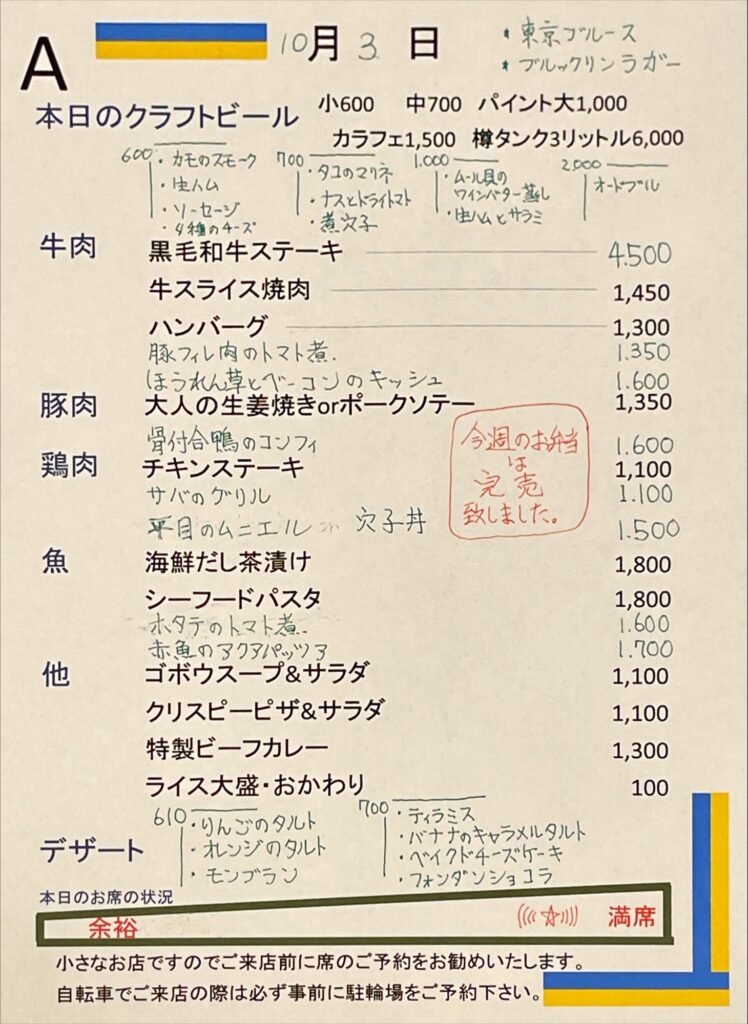 A
10月3日
* 東京ブルース
* ブルックリンラガー
本日のクラフトビール
小600 中700 パイント大1,000
カラフェ1,500 樽タンク3リットル6,000
600
・カモのスモーク
・生ハム
・ソーセージ
・4種のチーズ
700
・タコのマリネ
・ナスとドライトマト
・煮穴子
1.000
・ムール貝の
ワインバター蒸し
・生ハムとサラミ
2,000
オードブル
牛肉 黒毛和牛ステーキ 4.500
牛スライス焼肉 1,450
ハンバーグ 1,300
豚フィレ肉のトマト煮. 1.350
ほうれん草とベーコンのキッシュ 1.600
豚肉 大人の生姜焼きorポークソテー 1,350
骨付合鴨のコンフィ 1.600
鶏肉 チキンステーキ 1,100
サバのグリル 1.100
平目のムニエル 穴子丼 1.500
今週のお弁当
は
完売
致しました。
魚 海鮮だし茶漬け 1,800
シーフードパスタ 1,800
ホタテのトマト煮. 1.600
赤魚のアクアパッツア 1.700
他 ゴボウスープ&サラダ 1,100
クリスピーピザ&サラダ 1,100
特製ビーフカレー 1,300
ライス大盛・おかわり 100
デザート
610
・りんごのタルト
・オレンジのタルト
・モンブラン
700
・ティラミス
・バナナのキャラメルタルト
・ベイクドチーズケーキ
・フォンダンショコラ
本日のお席の状況
余裕 (((☆))) 満席
小さなお店ですのでご来店前に席のご予約をお勧めいたします。
自転車でご来店の際は必ず事前に駐輪場をご予約下さい。